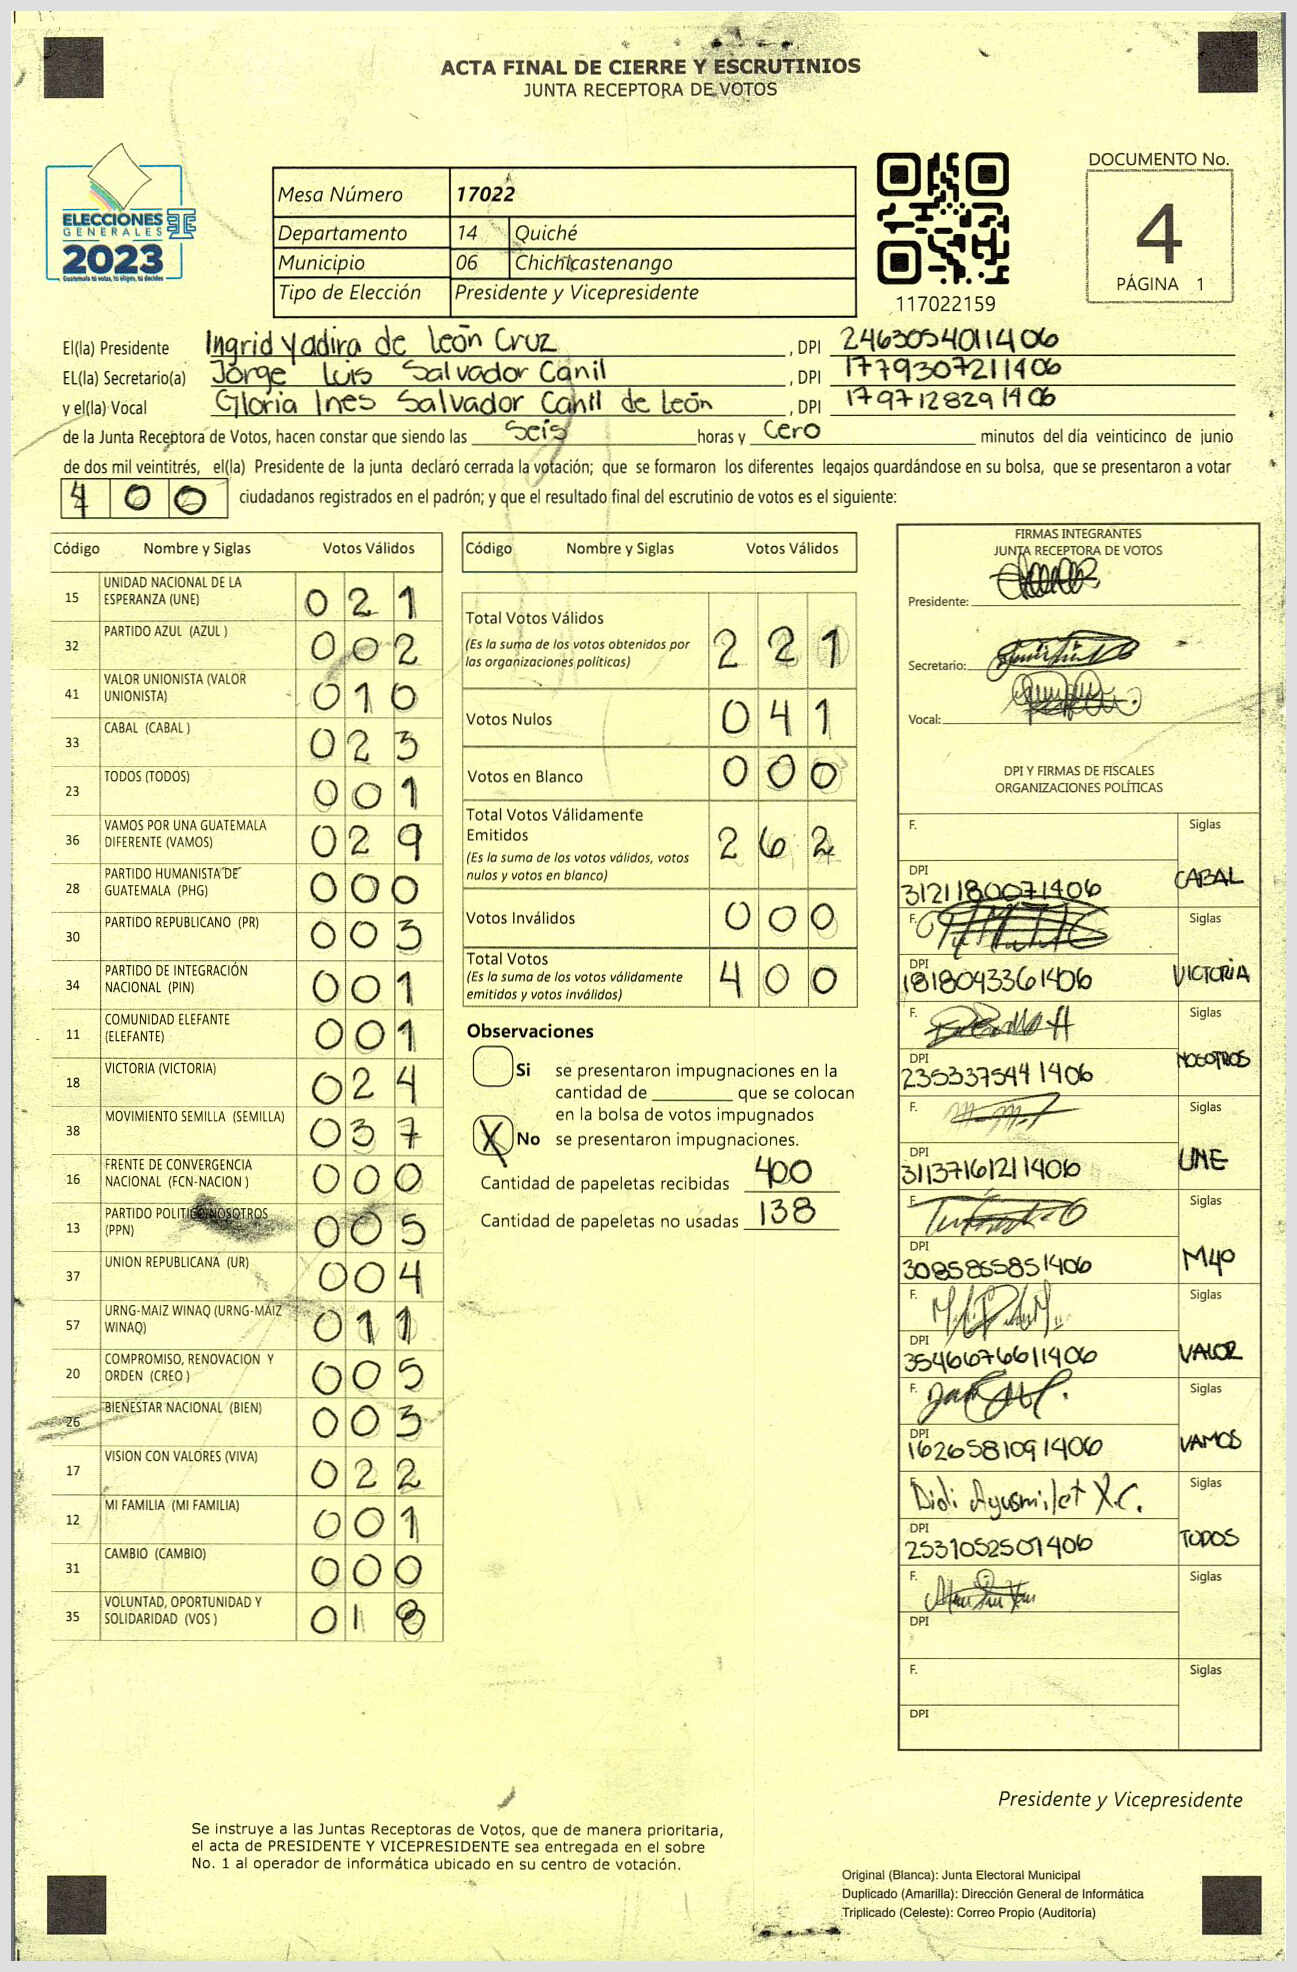 ACTA FINAL DE CIERRE Y ESCRUTINIOS
JUNTA RECEPTORA DE VOTOS
ELECCIONES
GENERALES
2023
Guatemala tú votas, tú eliges, tú decides
Mesa Número 17022
Departamento 14 Quiché
Municipio 06 Chichicastenango
Tipo de Elección Presidente y Vicepresidente
117022159
DOCUMENTO No.
4
PÁGINA 1
El(la) Presidente Ingrid Yadira de León Cruz , DPI 2463054011406
EL(la) Secretario(a) Jorge Luis Salvador Canil , DPI 1779307211406
y el(la) Vocal Gloria Ines Salvador Canil de León , DPI 1797128291406
de la Junta Receptora de Votos, hacen constar que siendo las Seis horas y Cero minutos del día veinticinco de junio
de dos mil veintitrés, el(la) Presidente de la junta declaró cerrada la votación; que se formaron los diferentes legajos guardándose en su bolsa, que se presentaron a votar
400 ciudadanos registrados en el padrón; y que el resultado final del escrutinio de votos es el siguiente:
Código Nombre y Siglas Votos Válidos
15 UNIDAD NACIONAL DE LA ESPERANZA (UNE) 021
32 PARTIDO AZUL (AZUL ) 002
41 VALOR UNIONISTA (VALOR UNIONISTA) 010
33 CABAL (CABAL ) 023
23 TODOS (TODOS) 001
36 VAMOS POR UNA GUATEMALA DIFERENTE (VAMOS) 029
28 PARTIDO HUMANISTA DE GUATEMALA (PHG) 000
30 PARTIDO REPUBLICANO (PR) 003
34 PARTIDO DE INTEGRACIÓN NACIONAL (PIN) 001
11 COMUNIDAD ELEFANTE (ELEFANTE) 001
18 VICTORIA (VICTORIA) 024
38 MOVIMIENTO SEMILLA (SEMILLA) 037
16 FRENTE DE CONVERGENCIA NACIONAL (FCN-NACION ) 000
13 PARTIDO POLITICO NOSOTROS (PPN) 005
37 UNION REPUBLICANA (UR) 004
57 URNG-MAIZ WINAQ (URNG-MAIZ WINAQ) 011
20 COMPROMISO, RENOVACION Y ORDEN (CREO ) 005
26 BIENESTAR NACIONAL (BIEN) 003
17 VISION CON VALORES (VIVA) 022
12 MI FAMILIA (MI FAMILIA) 001
31 CAMBIO (CAMBIO) 000
35 VOLUNTAD, OPORTUNIDAD Y SOLIDARIDAD (VOS ) 018
Código Nombre y Siglas Votos Válidos
Total Votos Válidos
(Es la suma de los votos obtenidos por
las organizaciones políticas) 221
Votos Nulos 041
Votos en Blanco 000
Total Votos Válidamente
Emitidos
(Es la suma de los votos válidos, votos
nulos y votos en blanco) 262
Votos Inválidos 000
Total Votos
(Es la suma de los votos válidamente
emitidos y votos inválidos) 400
Observaciones
Si se presentaron impugnaciones en la
cantidad de ________ que se colocan
en la bolsa de votos impugnados
X No se presentaron impugnaciones.
Cantidad de papeletas recibidas 400
Cantidad de papeletas no usadas 138
FIRMAS INTEGRANTES
JUNTA RECEPTORA DE VOTOS
Presidente:
Secretario:
Vocal:
DPI Y FIRMAS DE FISCALES
ORGANIZACIONES POLÍTICAS
F. Siglas
DPI
3121180071406 CABAL
F. Siglas
DPI
1818043361406 VICTORIA
F. Siglas
DPI
2353375441406 NOSOTROS
F. Siglas
DPI
3113716121406 UNE
F. Siglas
DPI
3085865851406 M40
F. Siglas
DPI
3546676611406 VALOR
F. Siglas
DPI
1626581091406 VAMOS
F. Siglas
DPI
2531052501406 TODOS
F. Siglas
DPI
F. Siglas
DPI
Presidente y Vicepresidente
Se instruye a las Juntas Receptoras de Votos, que de manera prioritaria,
el acta de PRESIDENTE Y VICEPRESIDENTE sea entregada en el sobre
No. 1 al operador de informática ubicado en su centro de votación.
Original (Blanca): Junta Electoral Municipal
Duplicado (Amarilla): Dirección General de Informática
Triplicado (Celeste): Correo Propio (Auditoría)